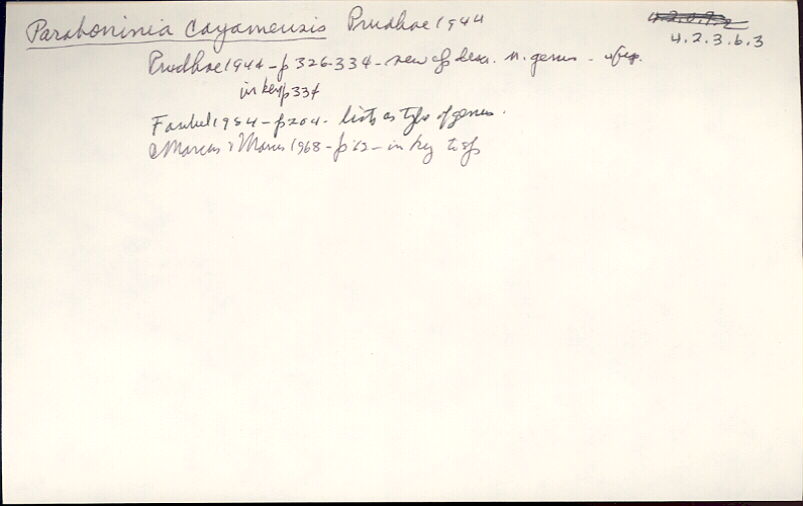 Paraboninia Cayamensis Prudhoe 1944
4.2.3.6.3
Prudhoe 1944 - p 326-334 - new sp desc. n. genus - w fig.
in key p 334
Faubel 1984 - p 204 - lists as type of genus.
Marcus & Marcus 1968 - p 62 - in key to sp